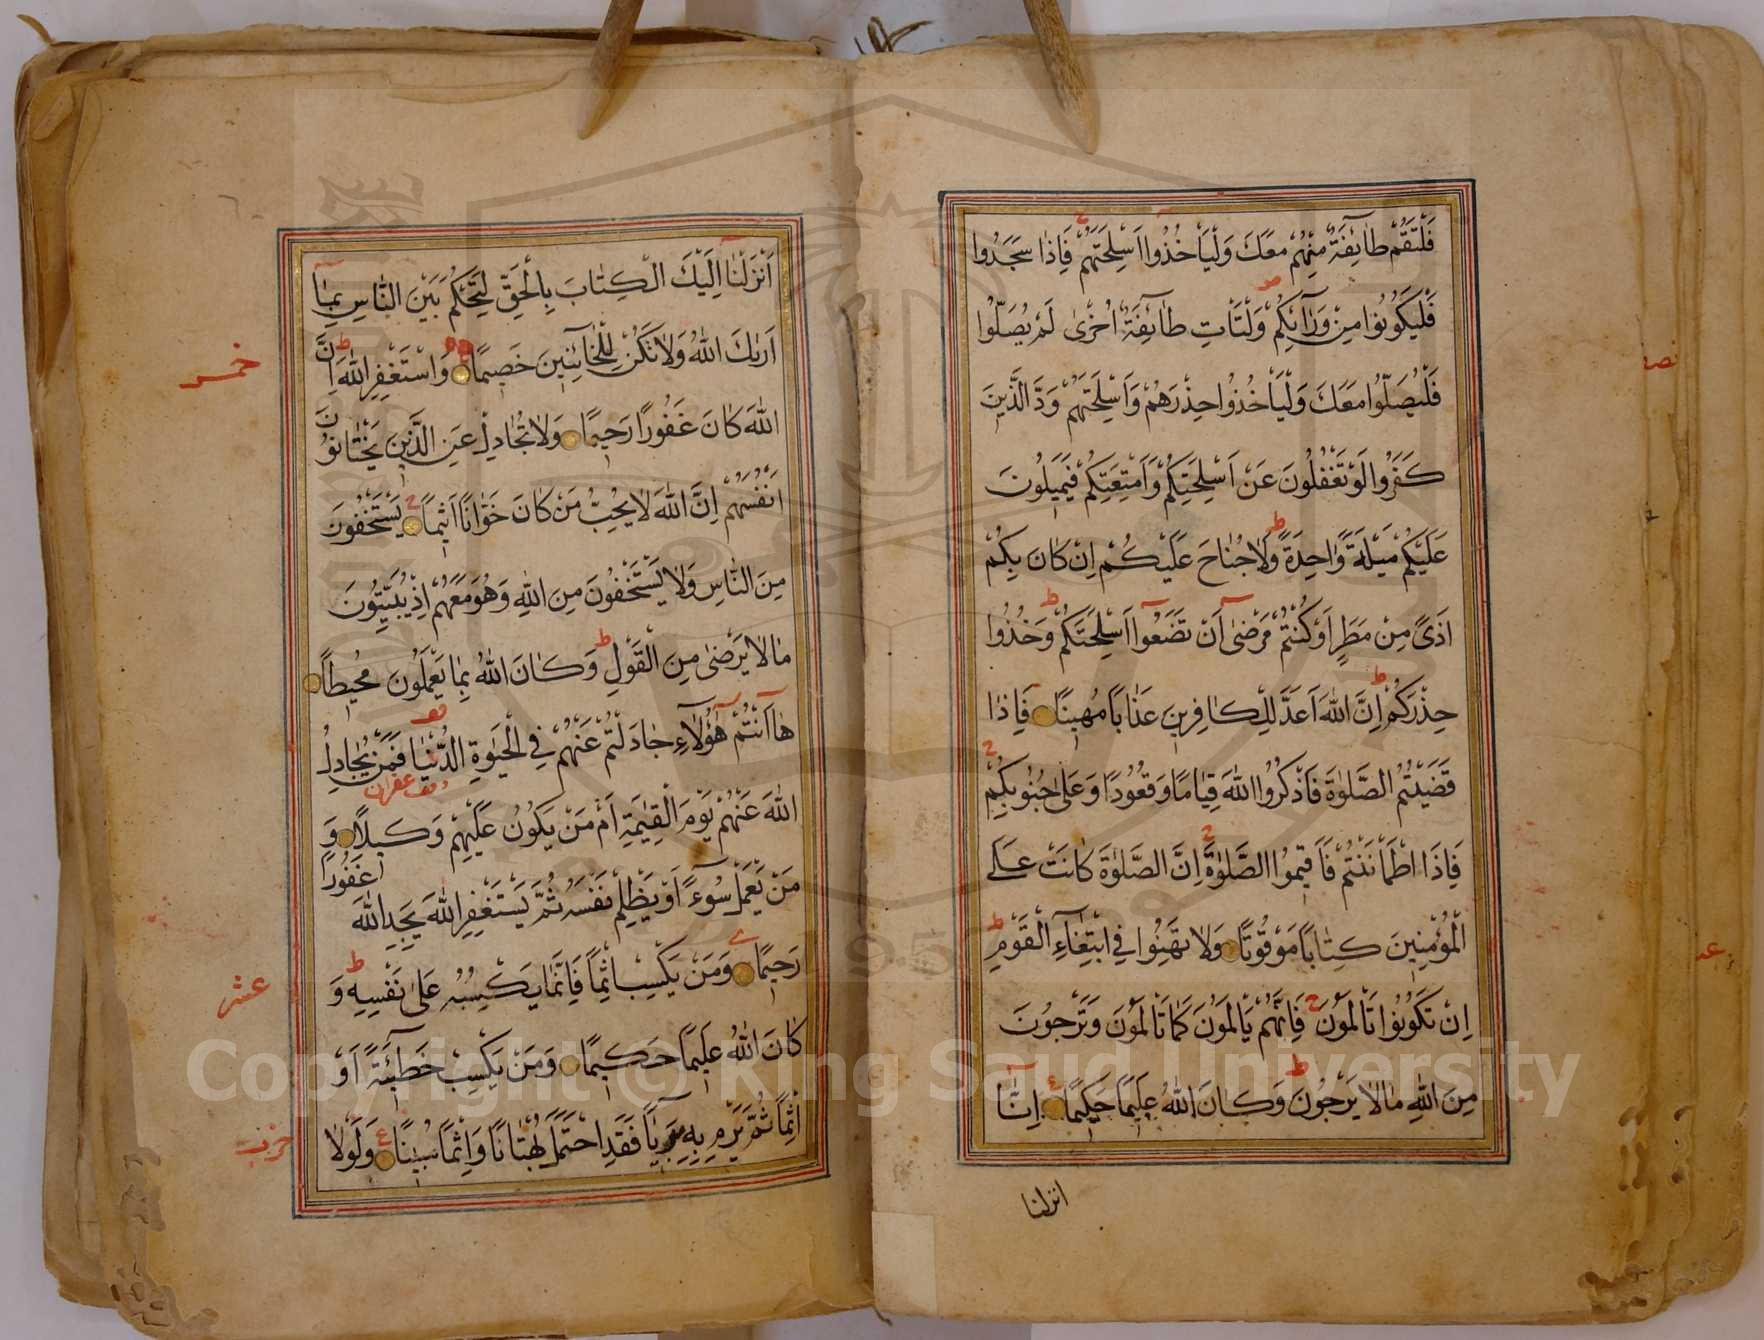 فَلْتَقُمْ طَائِفَةٌ مِنْهُمْ مَعَكَ وَلْيَأْخُذُوا اَسْلِحَتَهُمْ فَاِذَا سَجَدُوا
فَلْيَكُونُوا مِنْ وَرَآئِكُمْ وَلْتَأْتِ طَآئِفَةٌ اُخْرٰى لَمْ يُصَلُّوا
فَلْيُصَلُّوا مَعَكَ وَلْيَأْخُذُوا حِذْرَهُمْ وَاَسْلِحَتَهُمْ وَدَّ الَّذِينَ
كَفَرُوا لَوْ تَغْفُلُونَ عَنْ اَسْلِحَتِكُمْ وَاَمْتِعَتِكُمْ فَيَمِيلُونَ
عَلَيْكُمْ مَيْلَةً وَاحِدَةً وَلَا جُنَاحَ عَلَيْكُمْ اِنْ كَانَ بِكُمْ
اَذًى مِنْ مَطَرٍ اَوْ كُنْتُمْ مَرْضٰى اَنْ تَضَعُوا اَسْلِحَتَكُمْ وَخُذُوا
حِذْرَكُمْ اِنَّ اللّٰهَ اَعَدَّ لِلْكَافِرِينَ عَذَابًا مُهِينًا فَاِذَا
قَضَيْتُمُ الصَّلٰوةَ فَاذْكُرُوا اللّٰهَ قِيَامًا وَقُعُودًا وَعَلٰى جُنُوبِكُمْ
فَاِذَا اطْمَأْنَنْتُمْ فَاَقِيمُوا الصَّلٰوةَ اِنَّ الصَّلٰوةَ كَانَتْ عَلَى
الْمُؤْمِنِينَ كِتَابًا مَوْقُوتًا وَلَا تَهِنُوا فِي ابْتِغَآءِ الْقَوْمِ
اِنْ تَكُونُوا تَأْلَمُونَ فَاِنَّهُمْ يَأْلَمُونَ كَمَا تَأْلَمُونَ وَتَرْجُونَ
مِنَ اللّٰهِ مَا لَا يَرْجُونَ وَكَانَ اللّٰهُ عَلِيمًا حَكِيمًا اِنَّا
انزلنا
اَنْزَلْنَا اِلَيْكَ الْكِتَابَ بِالْحَقِّ لِتَحْكُمَ بَيْنَ النَّاسِ بِمَا
اَرٰيكَ اللّٰهُ وَلَا تَكُنْ لِلْخَآئِنِينَ خَصِيمًا وَاسْتَغْفِرِ اللّٰهَ اِنَّ
خمس
اللّٰهَ كَانَ غَفُورًا رَحِيمًا وَلَا تُجَادِلْ عَنِ الَّذِينَ يَخْتَانُونَ
اَنْفُسَهُمْ اِنَّ اللّٰهَ لَا يُحِبُّ مَنْ كَانَ خَوَّانًا اَثِيمًا يَسْتَخْفُونَ
مِنَ النَّاسِ وَلَا يَسْتَخْفُونَ مِنَ اللّٰهِ وَهُوَ مَعَهُمْ اِذْ يُبَيِّتُونَ
مَا لَا يَرْضٰى مِنَ الْقَوْلِ وَكَانَ اللّٰهُ بِمَا يَعْمَلُونَ مُحِيطًا
هَا اَنْتُمْ هٰؤُلَآءِ جَادَلْتُمْ عَنْهُمْ فِي الْحَيٰوةِ الدُّنْيَا فَمَنْ يُجَادِلُ
وقف غفران
اللّٰهَ عَنْهُمْ يَوْمَ الْقِيٰمَةِ اَمْ مَنْ يَكُونُ عَلَيْهِمْ وَكِيلًا وَ
مَنْ يَعْمَلْ سُوءً اَوْ يَظْلِمْ نَفْسَهُ ثُمَّ يَسْتَغْفِرِ اللّٰهَ يَجِدِ اللّٰهَ غَفُورًا
رَحِيمًا وَمَنْ يَكْسِبْ اِثْمًا فَاِنَّمَا يَكْسِبُهُ عَلٰى نَفْسِهِ وَ
عشر
كَانَ اللّٰهُ عَلِيمًا حَكِيمًا وَمَنْ يَكْسِبْ خَطِيئَةً اَوْ
اِثْمًا ثُمَّ يَرْمِ بِهِ بَرِيئًا فَقَدِ احْتَمَلَ بُهْتَانًا وَاِثْمًا مُبِينًا وَلَوْلَا
حزب
Copyright © King Saud University